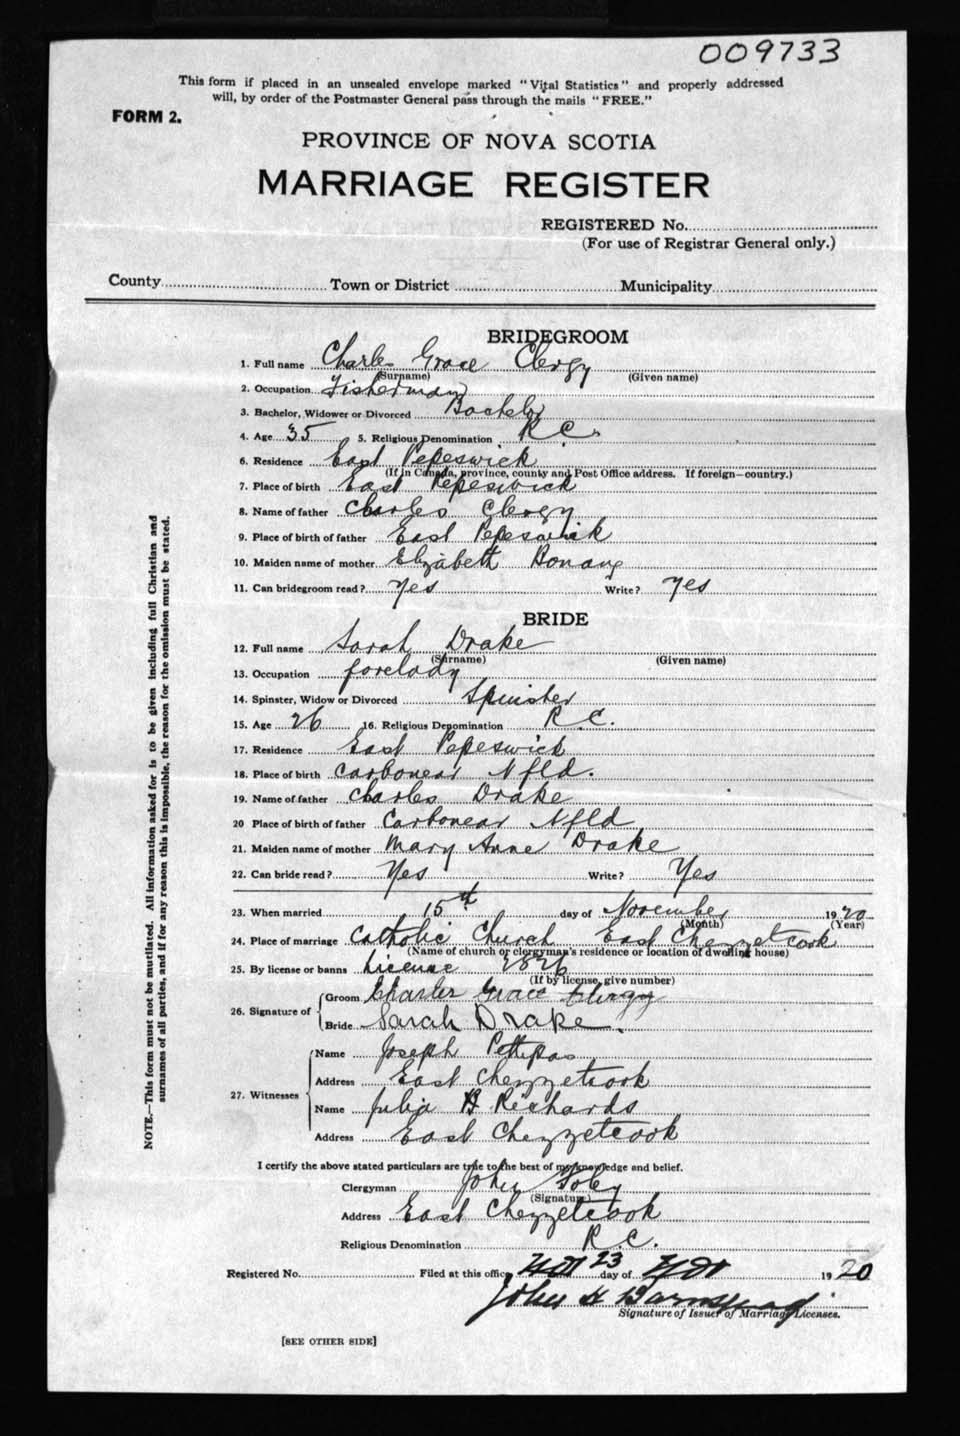 009733
This form if placed in an unsealed envelope marked "Vital Statistics" and properly addressed
will, by order of the Postmaster General pass through the mails "FREE."
FORM 2.
PROVINCE OF NOVA SCOTIA
MARRIAGE REGISTER
REGISTERED No.
(For use of Registrar General only.)
County Town or District Municipality
BRIDEGROOM
1. Full name Charles Grace Clergy
(Surname) (Given name)
2. Occupation Fisherman
3. Bachelor, Widower or Divorced Bachelor
4. Age 35 5. Religious Denomination R.C.
6. Residence East Pepeswick
(If in Canada, province, county and Post Office address. If foreign—country.)
7. Place of birth East Pepeswick
8. Name of father Charles Clergy
9. Place of birth of father East Pepeswick
10. Maiden name of mother Elizabeth Bonang
11. Can bridegroom read? Yes Write? Yes
BRIDE
12. Full name Sarah Drake
(Surname) (Given name)
13. Occupation forelady
14. Spinster, Widow or Divorced Spinster
15. Age 26 16. Religious Denomination R.C.
17. Residence East Pepeswick
18. Place of birth Carbonear Nfld.
19. Name of father Charles Drake
20 Place of birth of father Carbonear Nfld
21. Maiden name of mother Mary Anne Drake
22. Can bride read? Yes Write? Yes
23. When married 15th day of November 1920
(Month) (Year)
24. Place of marriage Catholic Church East Chezzetcook
(Name of church or clergyman's residence or location of dwelling house)
25. By license or banns License 2826
(If by license, give number)
26. Signature of Groom Charles Grace Clergy
Bride Sarah Drake.
27. Witnesses Name Joseph Pettipas
Address East Chezzetcook
Name Julia B Richards
Address East Chezzetcook
I certify the above stated particulars are true to the best of my knowledge and belief.
Clergyman John Foley
(Signature)
Address East Chezzetcook
Religious Denomination R.C.
Registered No. Filed at this office 23 day of Nov 1920
John H
Signature of Issuer of Marriage Licenses.
[SEE OTHER SIDE]
NOTE.—This form must not be mutilated. All information asked for is to be given including full Christian and
surnames of all parties, and if for any reason this is impossible, the reason for the omission must be stated.